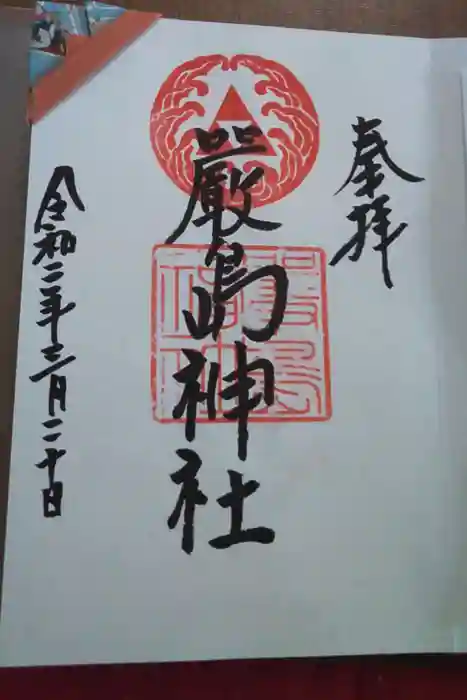 奉拝
嚴島神社
令和二年三月二十日